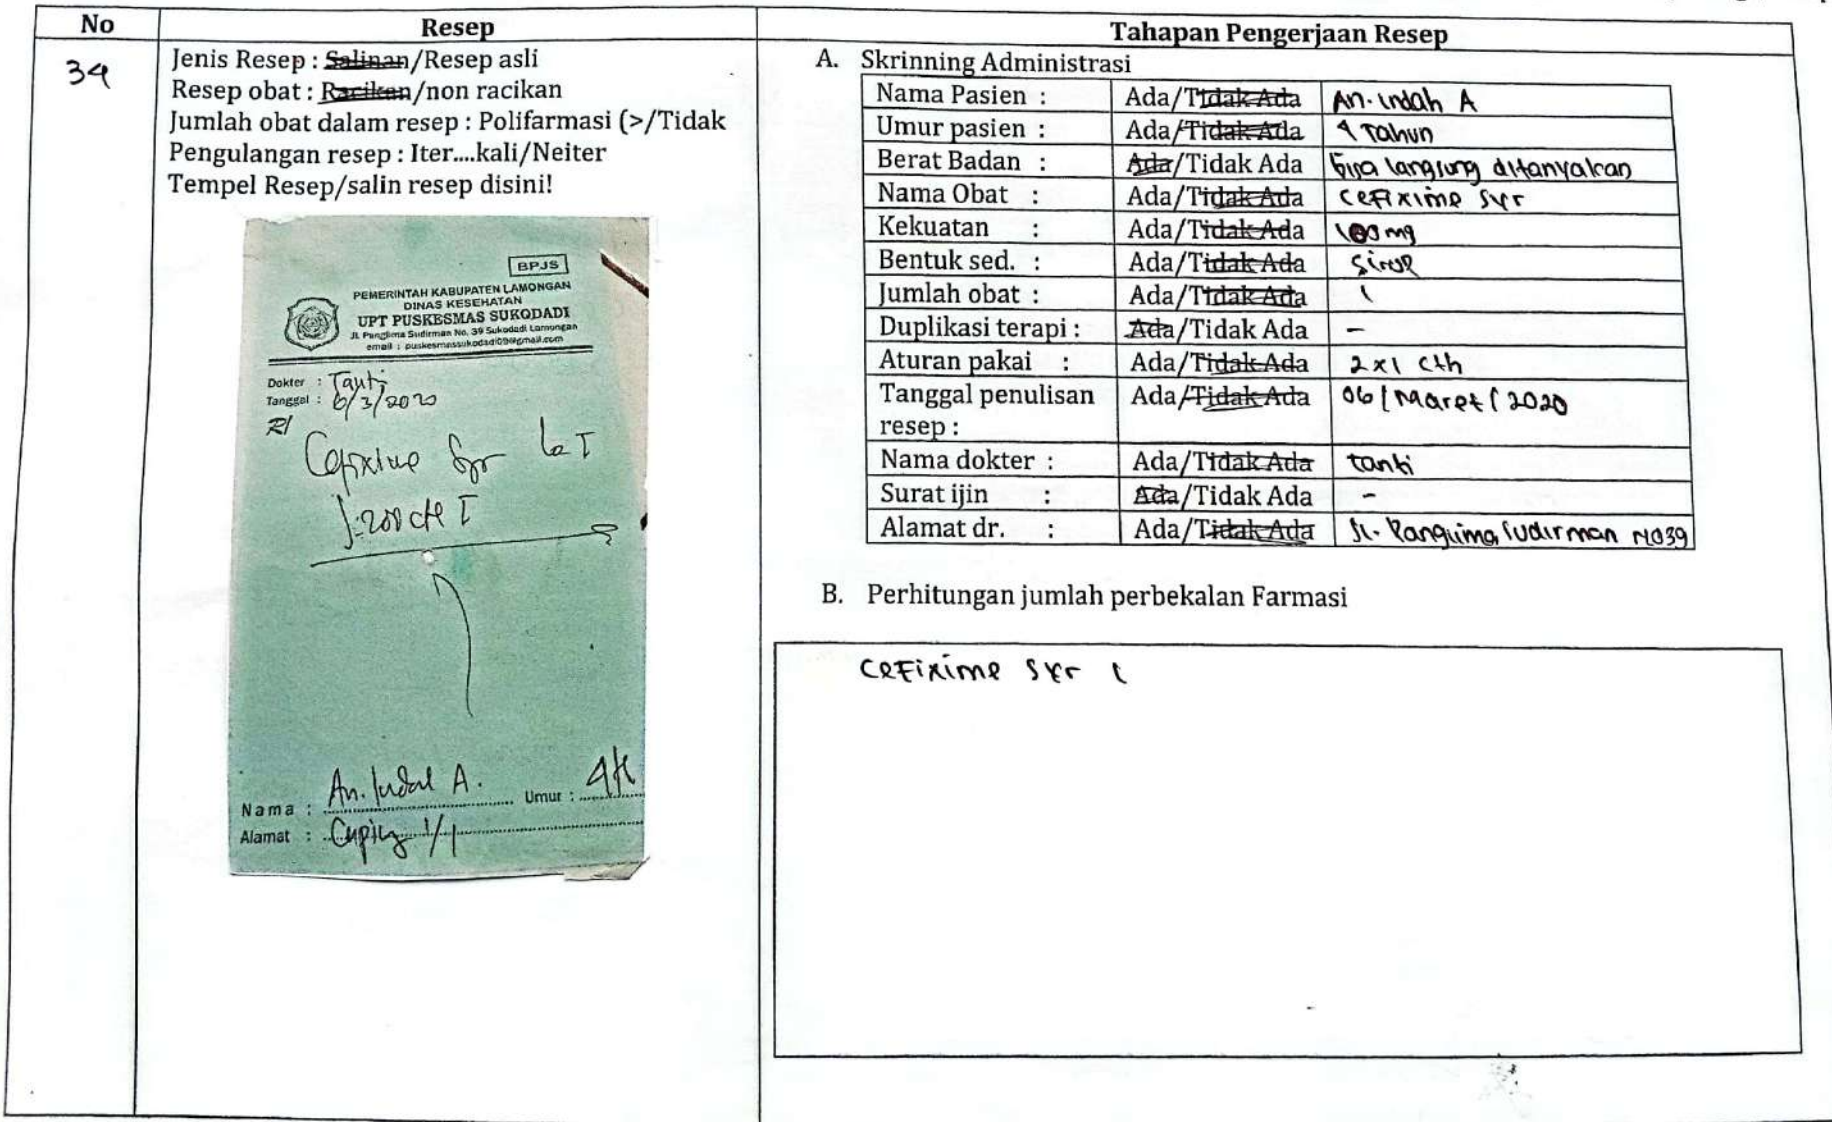 No
Resep
Tahapan Pengerjaan Resep
34
Jenis Resep : Salinan/Resep asli
Resep obat : Racikan/non racikan
Jumlah obat dalam resep : Polifarmasi (>/Tidak
Pengulangan resep : Iter....kali/Neiter
Tempel Resep/salin resep disini!
BPJS
PEMERINTAH KABUPATEN LAMONGAN
DINAS KESEHATAN
UPT PUSKESMAS SUKODADI
Jl. Panglima Sudirman No. 39 Sukodadi Lamongan
email : puskesmassukodadi09@gmail.com
Dokter : Tanti
Tanggal : 6/3/2020
R/
Cefixime Syr
I
Nama : An. Indah A. Umur : 4th
Alamat : 1/1
A. Skrinning Administrasi
Nama Pasien : Ada/Tidak Ada An. indah A
Umur pasien : Ada/Tidak Ada 4 Tahun
Berat Badan : Ada/Tidak Ada bisa langsung ditanyakan
Nama Obat : Ada/Tidak Ada cefixime syr
Kekuatan : Ada/Tidak Ada 100 mg
Bentuk sed. : Ada/Tidak Ada Sirup
Jumlah obat : Ada/Tidak Ada 1
Duplikasi terapi : Ada/Tidak Ada –
Aturan pakai : Ada/Tidak Ada 2x1 cth
Tanggal penulisan Ada/Tidak Ada 06/Maret/2020
resep :
Nama dokter : Ada/Tidak Ada tanti
Surat ijin : Ada/Tidak Ada -
Alamat dr. : Ada/Tidak Ada Jl. Panglima Sudirman NO39
B. Perhitungan jumlah perbekalan Farmasi
CeFixime Syr 1